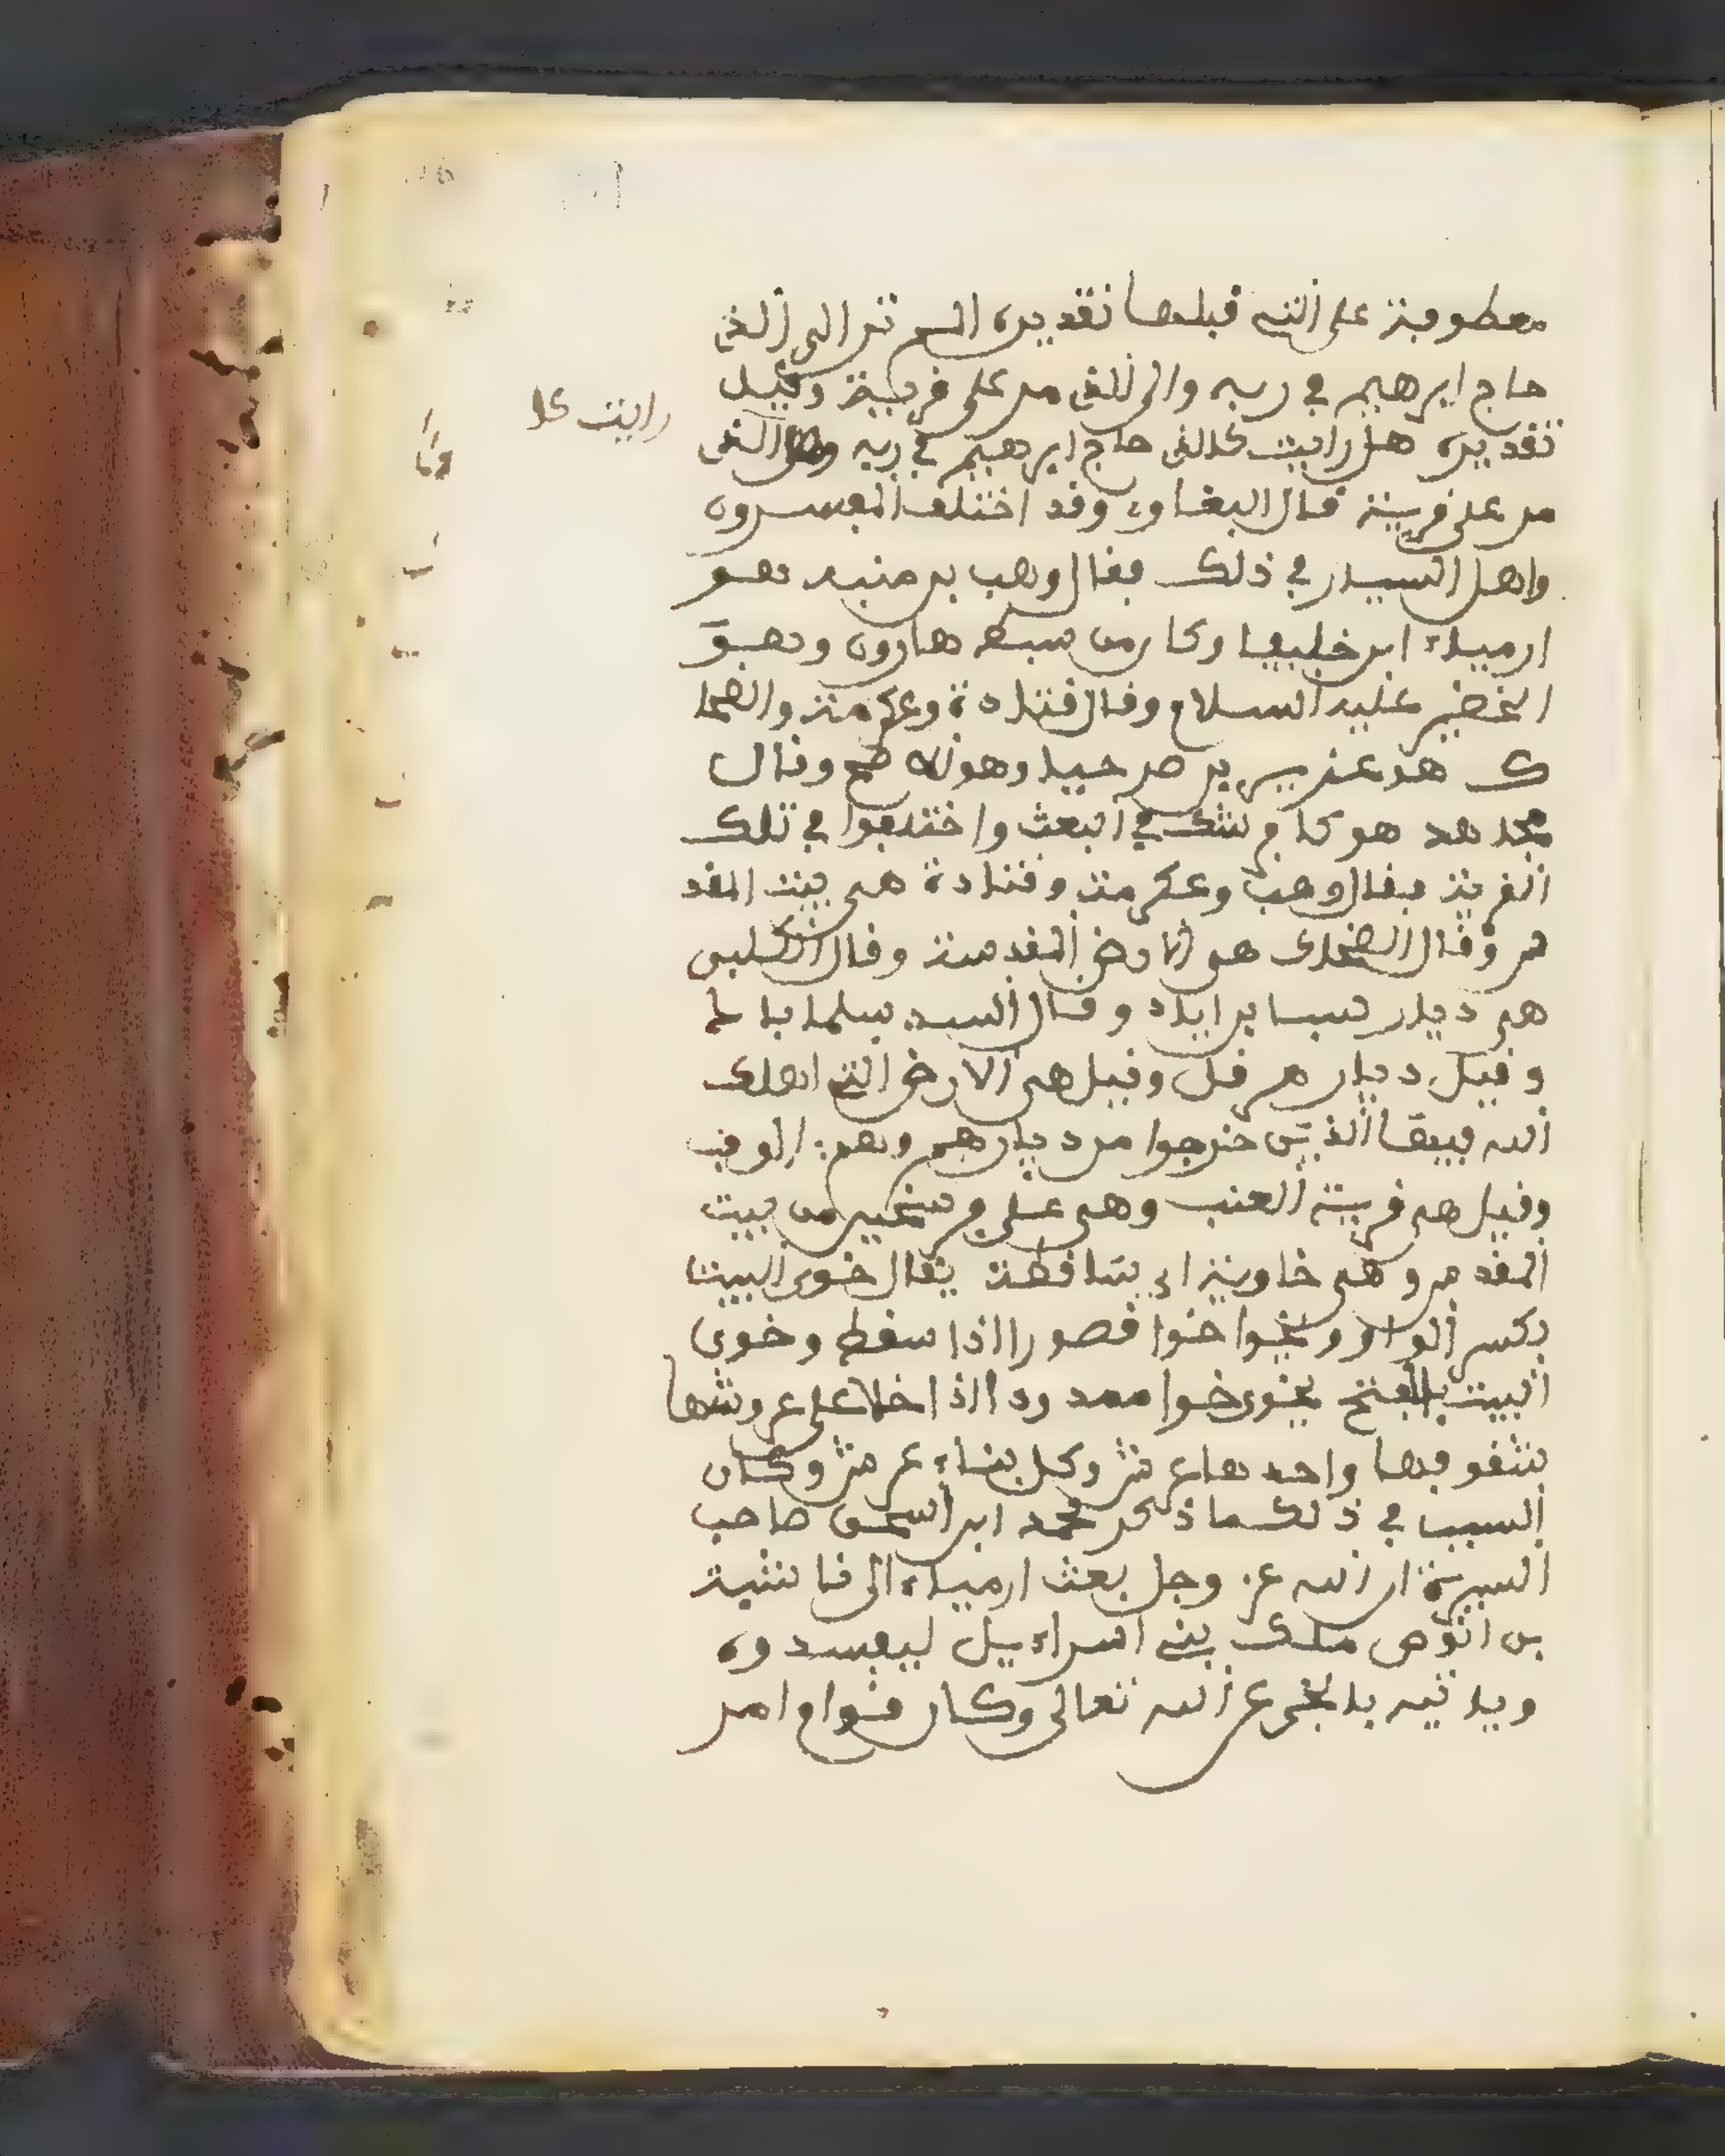 معطوفة على التي قبلها تقديره الم تر الى الذي
حاج ابرهيم في ربه والى الذي مر على قرية وقيل
تقديره هل رايت كالذي حاج ابرهيم في ربه وهل الذي
رايت كا
مر على قرية قال البغاوي وقد اختلف المفسرون
واهل السير في ذلك فقال وهب بن منبه هو
ارمياء ابن خلفيا وكان من سبط هارون وهو
الخضر عليه السلام وقال قتادة وعكرمة والضحا
ك هو عزير بن صر حيا وهو صح وقال
مجاهد هو كافر شك في البعث واختلفوا في تلك
القرية فقال وهب وعكرمة وقتادة هي بيت المقد
س وقال الضحاك هي الارض المقدسة وقال الكلبي
هي ديار سابر اباد وقال السد سلما باد
وقيل ديار هرقل وقيل هي الارض التي اهلك
الله فيها الذين خرجوا من ديارهم وهم الوف
وقيل هي قرية العنب وهي على فرسخين من بيت
المقدس وهي خاوية اي ساقطة يقال خوي البيت
بكسر الواو ويخوا خوا قصورا اذا سقط وخوى
البيت بالفتح يخوى خوا ممدودا اذا خلا على عروشها
سقوفها واحدها عرش وكل بناء عرش وكان
السبب في ذلك ما ذكر محمد ابن اسحق صاحب
السيرة ان الله عز وجل بعث ارمياء الى ناشية
بن انوص ملك بني اسراءيل ليفسدوه
وياتيه بالخبر عن الله تعالى وكان قوام امر